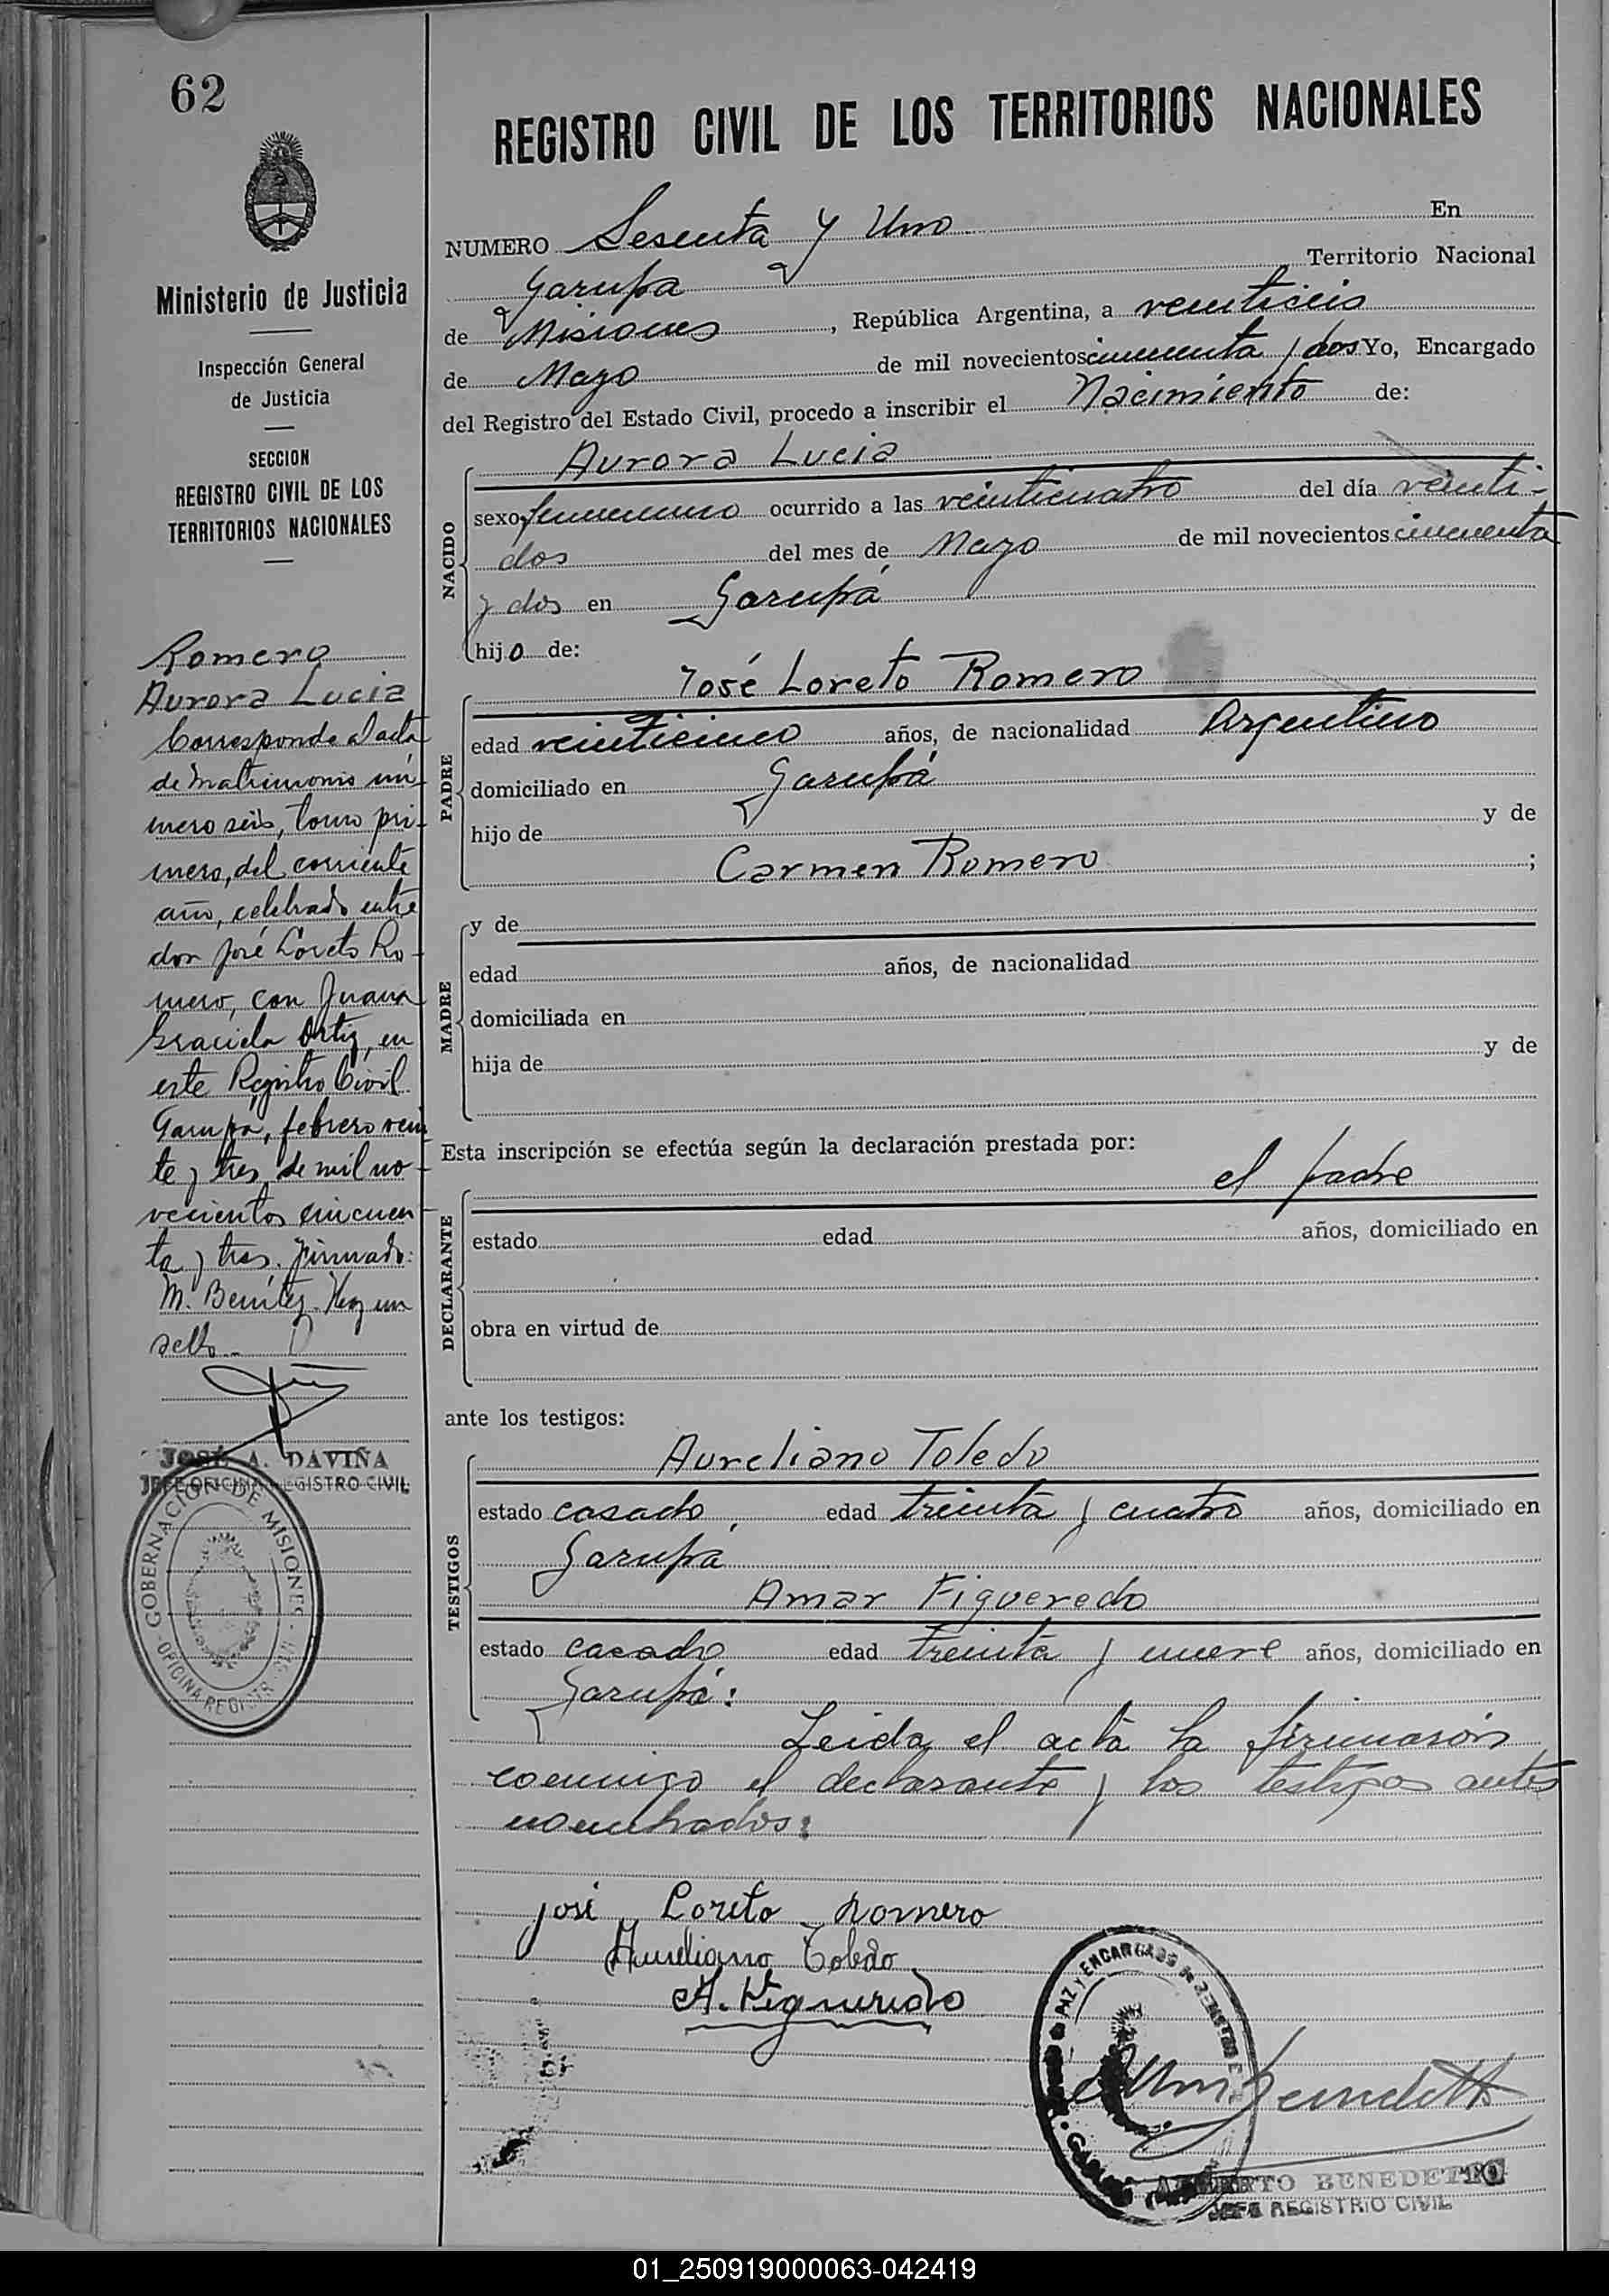 62
Ministerio de Justicia
Inspección General
de Justicia
SECCION
REGISTRO CIVIL DE LOS
TERRITORIOS NACIONALES
Romero
Aurora Lucia
Corresponde al acta
de Matrimonio nú-
mero seis, tomo pri-
mero, del corriente
año, celebrado entre
don José Loreto Ro-
mero, con Juana
Graciela Ortiz, en
este Registro Civil.
Garupá, febrero vein
te y tres, de mil no-
vecientos cincuen-
ta y tres. Firmado:
M. Benítez. Hay un
sello.-
JOSÉ A. DAVIÑA
JEFE OFICINA REGISTRO CIVIL
GOBERNACION DE MISIONES
OFICINA REGISTR
REGISTRO CIVIL DE LOS TERRITORIOS NACIONALES
NUMERO Sesenta y Uno En
Garupa Territorio Nacional
de Misiones, República Argentina, a veintiseis
de Mayo de mil novecientos cincuenta y dos Yo, Encargado
del Registro del Estado Civil, procedo a inscribir el Nacimiento de:
NACIDO
Aurora Lucia
sexo femenino ocurrido a las veinticuatro del día veinti-
dos del mes de Mayo de mil novecientos cincuenta
y dos en Garupá
hijo de:
PADRE
José Loreto Romero
edad veinticinco años, de nacionalidad Argentino
domiciliado en Garupá
hijo de y de
Carmen Romero ;
MADRE
y de
edad años, de nacionalidad
domiciliada en
hija de y de
Esta inscripción se efectúa según la declaración prestada por:
DECLARANTE
el padre
estado edad años, domiciliado en
obra en virtud de
ante los testigos:
TESTIGOS
Aureliano Toledo
estado casado, edad treinta y cuatro años, domiciliado en
Garupa
Amar Figueredo
estado casado edad treinta y nueve años, domiciliado en
Garupá:
Leida el acta la firmaron
conmigo el declarante y los testigos antes
nombrados:
José Loreto Romero
Aureliano Toledo
A. Figueredo
PAZ Y ENCARGADO
ALBERTO BENEDETTO
JEFE REGISTRIO CIVIL
01_250919000063-042419